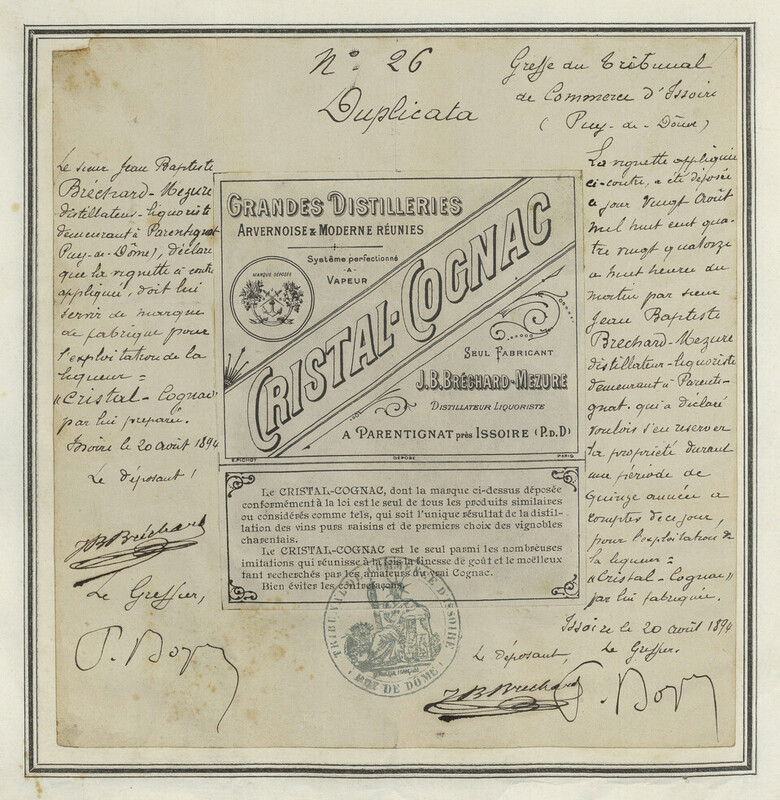 N° 26
Duplicata
Greffe du Tribunal
de Commerce d'Issoire
(Puy-de-Dôme)
Le sieur Jean Baptiste
Bréchard-Mezure
distillateur-liquoriste
demeurant à Parentignat
Puy-de-Dôme), déclare
que la vignette ci contre
appliquée, doit lui
servir de marque
de fabrique pour
l'exploitation de la
liqueur =
"Cristal-Cognac"
par lui préparée.
Issoire le 20 août 1894
Le déposant,
JB Bréchard
Le Greffier,
GRANDES DISTILLERIES
ARVERNOISE & MODERNE RÉUNIES
Système perfectionné
-A-
VAPEUR
MARQUE DÉPOSÉE
CRISTAL-COGNAC
SEUL FABRICANT
J.B. BRÉCHARD-MEZURE
DISTILLATEUR LIQUORISTE
A PARENTIGNAT près ISSOIRE (P.d.D)
E. PICHOT DÉPOSÉ PARIS
Le CRISTAL-COGNAC, dont la marque ci-dessus déposée
conformément à la loi est le seul de tous les produits similaires
ou considérés comme tels, qui soit l'unique résultat de la distil-
lation des vins purs raisins et de premiers choix des vignobles
charentais.
Le CRISTAL-COGNAC est le seul parmi les nombreuses
imitations qui réunisse à la fois la finesse de goût et le moëlleux
tant recherchés par les amateurs du vrai Cognac.
Bien éviter les contrefaçons.
TRIBUNAL DE COMMERCE D'ISSOIRE
PUY DE DÔME
La vignette appliquée
ci-contre, a été déposée
ce jour vingt Août
mil huit cent qua-
tre vingt quatorze
a huit heures du
matin par sieur
Jean Baptiste
Brechard-Mezure
distillateur-liquoriste
demeurant à Parenti-
gnat. qui a déclaré
vouloir s'en réserver
la propriété durant
une période de
Quinze années a
compter de ce jour,
pour l'exploitation de
la liqueur =
"Cristal-Cognac"
par lui fabriquée.
Issoire le 20 août 1894
Le déposant,
Le Greffier.
JB Brechard